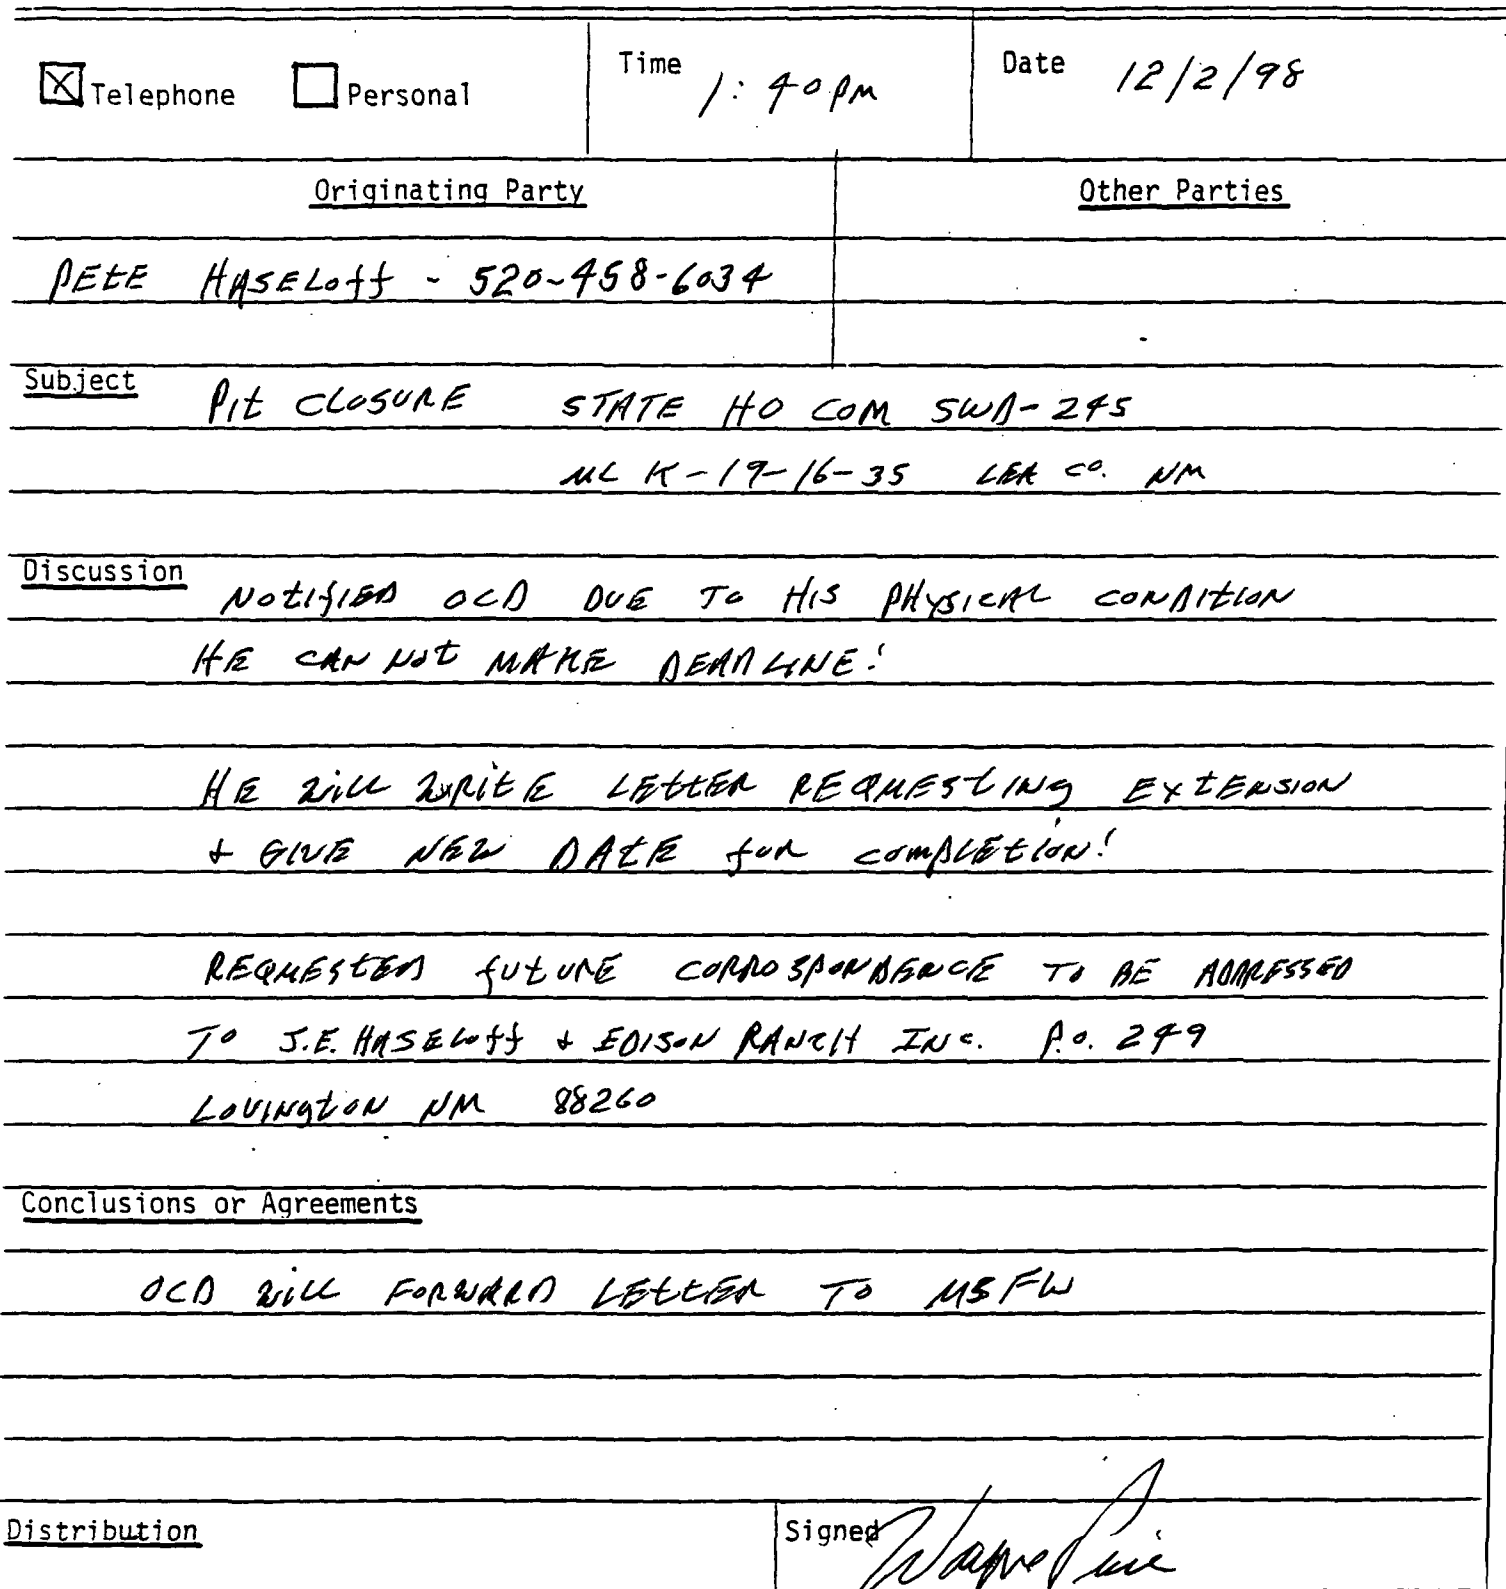 ☒ Telephone ☐ Personal Time 1:40pm Date 12/2/98
Originating Party Other Parties
PETE HASELOFF - 520-458-6034
Subject Pit CLOSURE STATE HO COM SWD-245
UL K-19-16-35 LEA CO. NM
Discussion NOTIFIED OCD DUE TO HIS PHYSICAL CONDITION
HE CAN NOT MAKE DEADLINE!
HE WILL WRITE LETTER REQUESTING EXTENSION
& GIVE NEW DATE FOR COMPLETION!
REQUESTED FUTURE CORROSPONDENCE TO BE ADDRESSED
TO J.E. HASELOFF & EDISON RANCH INC. P.O. 249
LOVINGTON NM 88260
Conclusions or Agreements
OCD WILL FORWARD LETTER TO
Distribution Signed Wayne Price